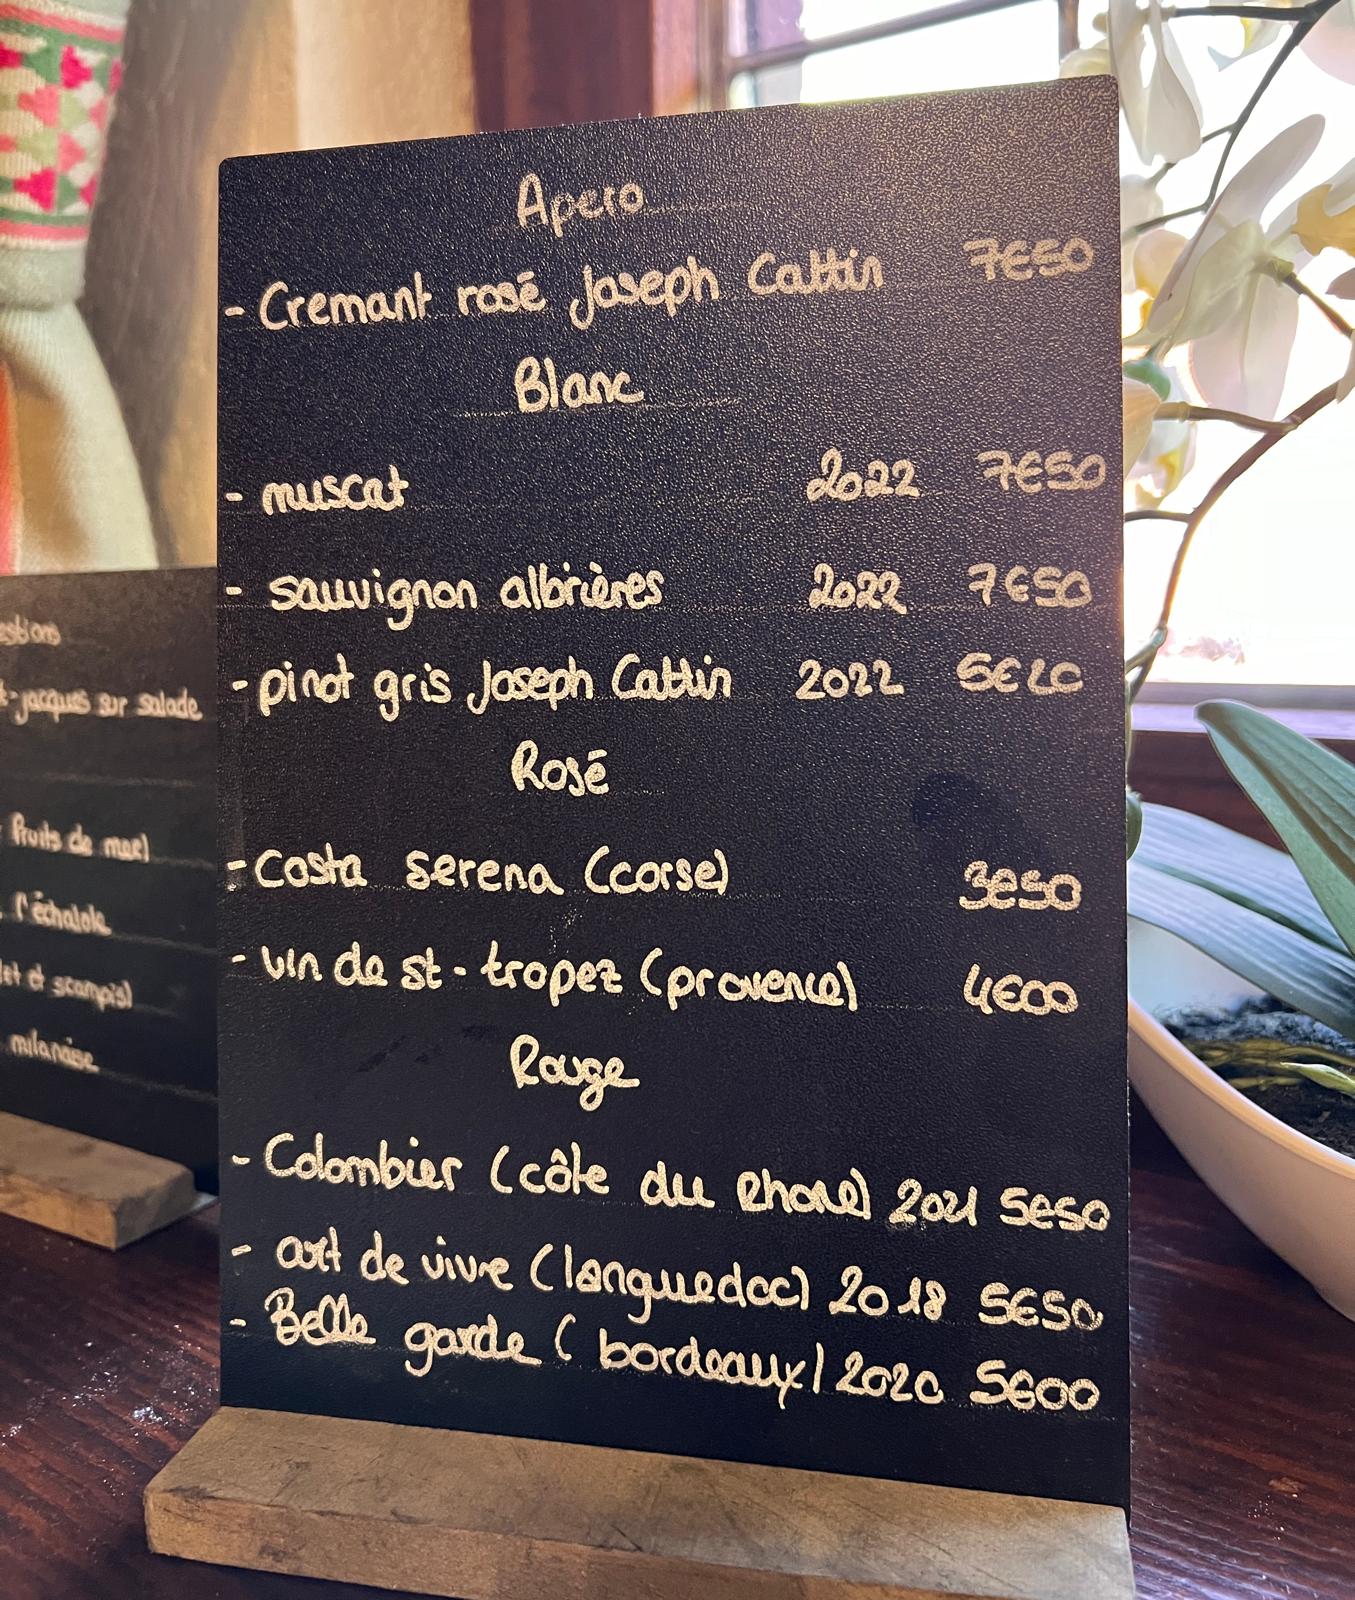 Apero
- Cremant rosé Joseph Cattin 7€50
Blanc
- muscat 2022 7€50
- sauvignon albrières 2022 7€50
- pinot gris Joseph Cattin 2022 5€20
Rosé
- Costa serena (corse) 3€50
- vin de st-tropez (provence) 4€00
Rouge
- Colombier (côte du Rhone) 2021 5€50
- art de vivre (languedoc) 2018 5€50
- Belle garde (bordeaux) 2020 5€00
-jacques sur salade
fruits de mer)
l'échalote
et scampis)
milanaise